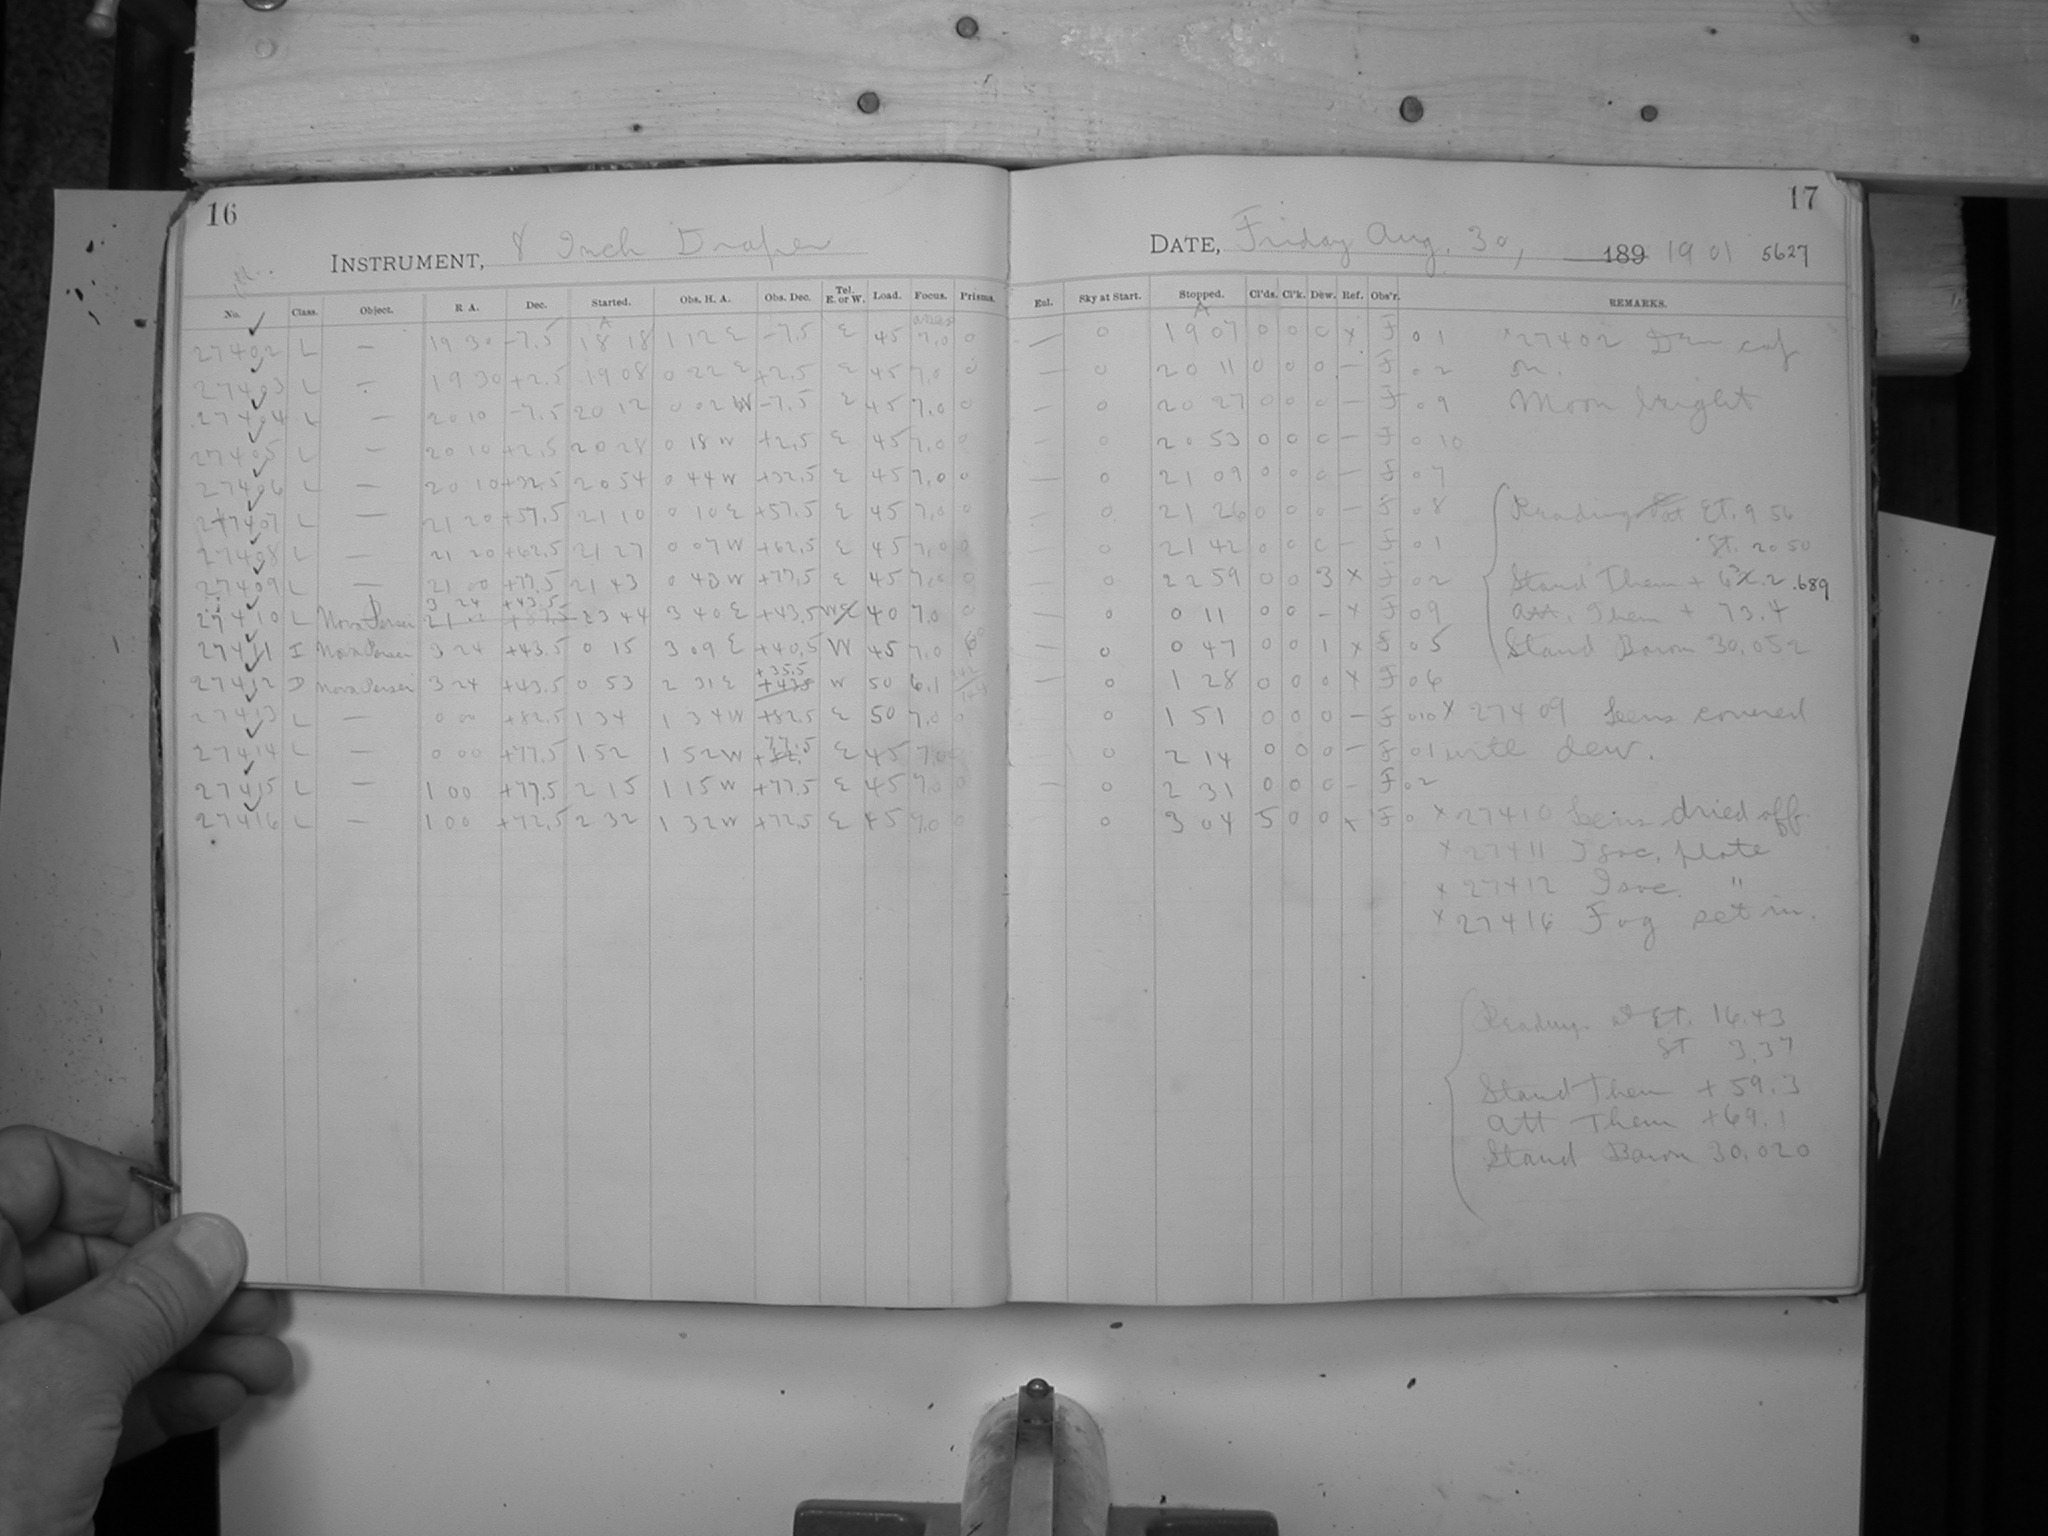 16
INSTRUMENT, 8 Inch Draper
No. Class. Object. R. A. Dec. Started. Obs. H. A. Obs. Dec. Tel. E. or W. Load. Focus. Prisms.
27402 L — 19 30 -7.5 18 18 1 12 E -7.5 E 45 7.0 0
27403 L — 19 30 +2.5 19 08 0 22 E +2.5 E 45 7.0 0
27404 L — 20 10 -7.5 20 12 0 02 W -7.5 E 45 7.0 0
27405 L — 20 10 +2.5 20 28 0 18 W +2.5 E 45 7.0 0
27406 L — 20 10 +32.5 20 54 0 44 W +32.5 E 45 7.0 0
27407 L — 21 20 +57.5 21 10 0 10 E +57.5 E 45 7.0 0
27408 L — 21 20 +62.5 21 27 0 07 W +62.5 E 45 7.0 0
27409 L — 21 00 +77.5 21 43 0 43 W +77.5 E 45 7.0 0
27410 L Nova Persei 3 24 +43.5 23 44 3 40 E +43.5 W 40 7.0 0
27411 I Nova Persei 3 24 +43.5 0 15 3 09 E +40.5 W 45 7.0
27412 D Nova Persei 3 24 +43.5 0 53 2 31 E +35.5 W 50 6.1
27413 L — 0 00 +82.5 1 34 1 34 W +82.5 E 50 7.0 0
27414 L — 0 00 +77.5 1 52 1 52 W +77.5 E 45 7.0 0
27415 L — 1 00 +77.5 2 15 1 15 W +77.5 E 45 7.0 0
27416 L — 1 00 +72.5 2 32 1 32 W +72.5 E 45 7.0 0
17
DATE, Friday Aug. 30, 189 1901 5627
Enl. Sky at Start. Stopped. Cl'ds. Cl'k. Dew. Ref. Obs'r. REMARKS.
— 0 19 07 0 0 0 x F 01 x27402 Dew cap
— 0 20 11 0 0 0 — F 02 on.
— 0 20 27 0 0 0 — F 09 Moon bright
— 0 20 53 0 0 0 — F 010
— 0 21 09 0 0 0 — F 07
— 0 21 26 0 0 0 — F 08 Readings at ET. 9 56
— 0 21 42 0 0 0 — F 01 St. 20 50
— 0 22 59 0 0 3 x F 02 Stand Them + 63.2 .689
— 0 0 11 0 0 - x F 09 att. Them + 73.4
— 0 0 47 0 0 1 x F 05 Stand Barom 30.052
— 0 1 28 0 0 0 x F 06
0 1 51 0 0 0 — F 010 x 27409 Lens covered
0 2 14 0 0 0 — F 01 with dew.
— 0 2 31 0 0 0 - F 02
0 3 04 5 0 0 x F 0 x 27410 Lens dried off
x 27411 Isoc. plate
x 27412 Isoc. "
x 27416 Fog set in.
Readings at ET. 16.43
ST 3.37
Stand Them + 59.3
att Them +69.1
Stand Barom 30.020